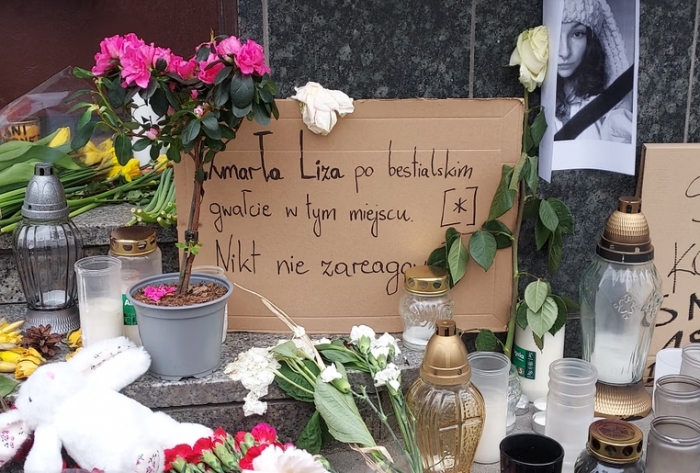 Zmarła Liza po bestialskim
gwałcie w tym miejscu. [*]
Nikt nie zareago